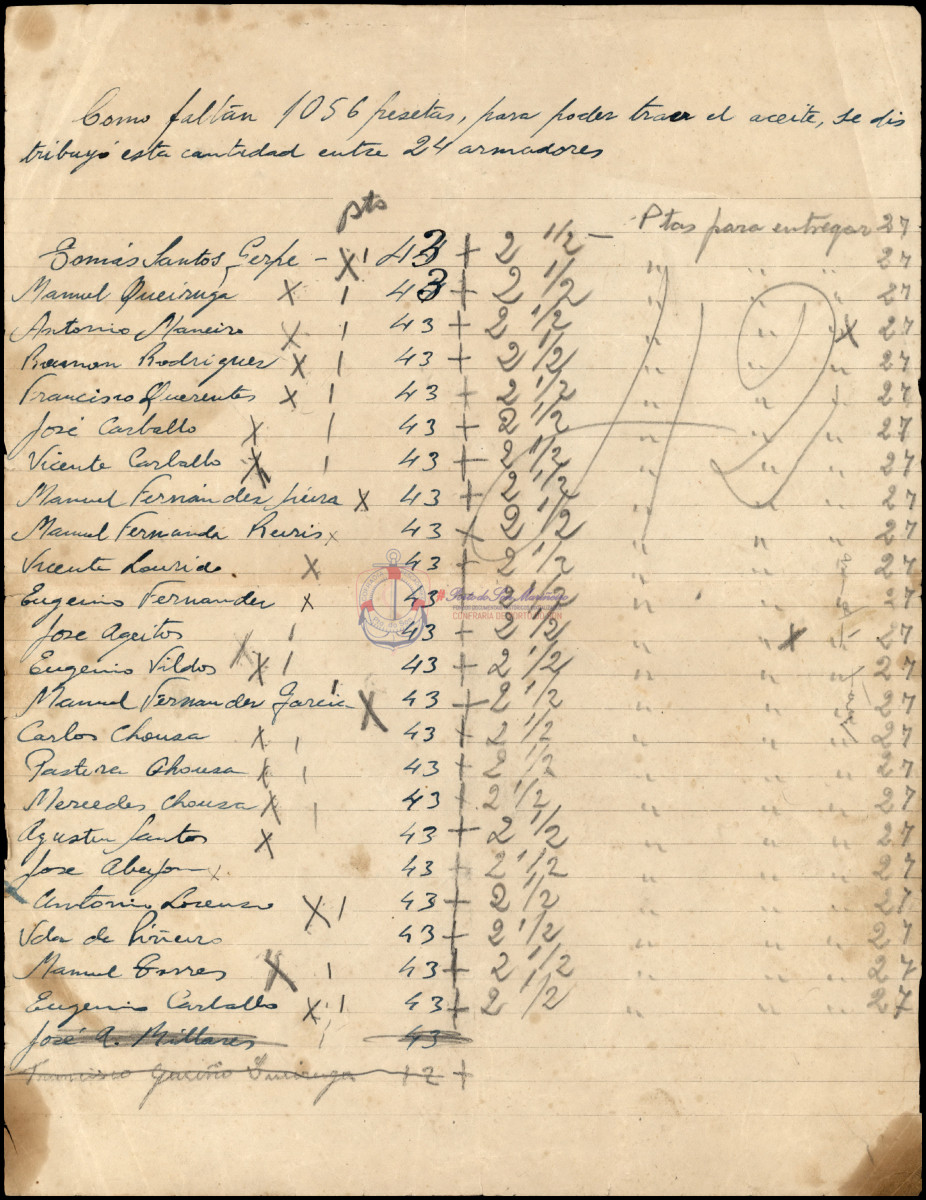 Como faltan 1056 pesetas, para poder traer el aceite, se dis
tribuyó esta cantidad entre 24 armadores
pts
Ptas para entregar 27
Tomás Santos Gerpe – X 1 43 + 2 1/2 – " " " 27
Manuel Queiruga X 1 43 + 2 1/2 " " " 27
Antonio Maneiro X 1 43 + 2 1/2 " " X 27
Ramon Rodriguez X 1 43 + 2 1/2 " " " 27
Francisco Querentes X 1 43 + 2 1/2 " " " 27
José Carballo X 1 43 + 2 1/2 " " " 27
Vicente Carballo X 1 43 + 2 1/2 " " " 27
Manuel Fernández X 43 + 2 1/2 " " " 27
Manuel Fernandez x 43 x 2 1/2 " " " 27
Vicente Lourido. X 43 + 2 1/2 " " 27
Eugenio Fernandez x 43 + 2 1/2 " " 27
Jose Ageitos 1 43 + 2 1/2 " X " 27
Eugenio Vildos X 1 43 + 2 1/2 " " " 27
Manuel Fernandez Garcia 1 X 43 + 2 1/2 " " 27
Carlos Chousa X 1 43 + 2 1/2 " " 27
Pastora Chousa X 1 43 + 2 1/2 " " " 27
Mercedes Chousa X 1 43 + 2 1/2 " " " 27
Agustin Santos X 43 + 2 1/2 " " " 27
Jose Abeijon x 43 + 2 1/2 " " " 27
Antonio Lorenzo X 1 43 + 2 1/2 " " " 27
Vda de Piñeiro 43 – 2 1/2 " " " 27
Manuel Torres X 1 43 + 2 1/2 " " " 27
Eugenio Carballo X 1 43 + 2 1/2 " " " 27
José A. Millares 1 43
Francisco
Porto do Son Mariñeiro
CONFRARÍA DE PORTO DO SON